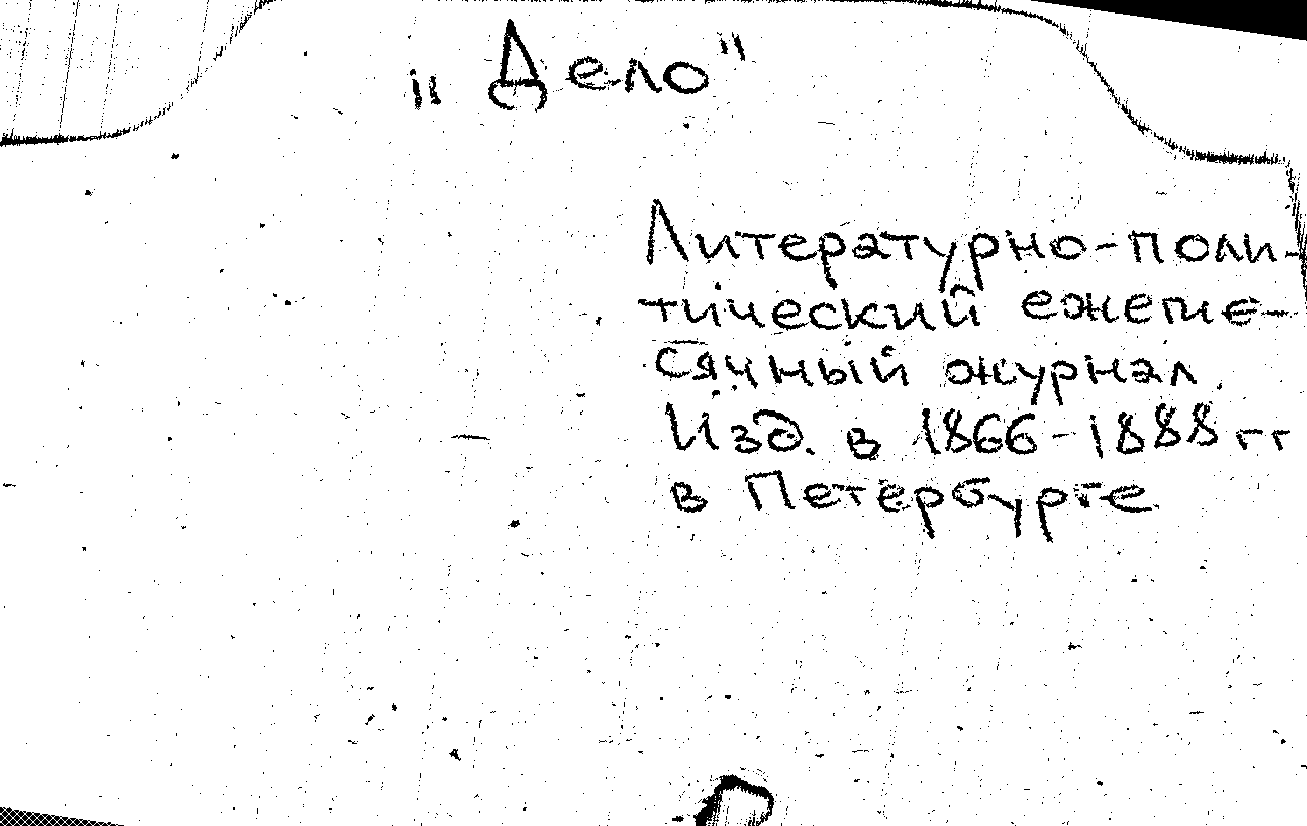 "Дело"
Литературно-поли-
тический ежеме-
сячный журнал
Изд. в 1866-1888 гг
в Петербурге